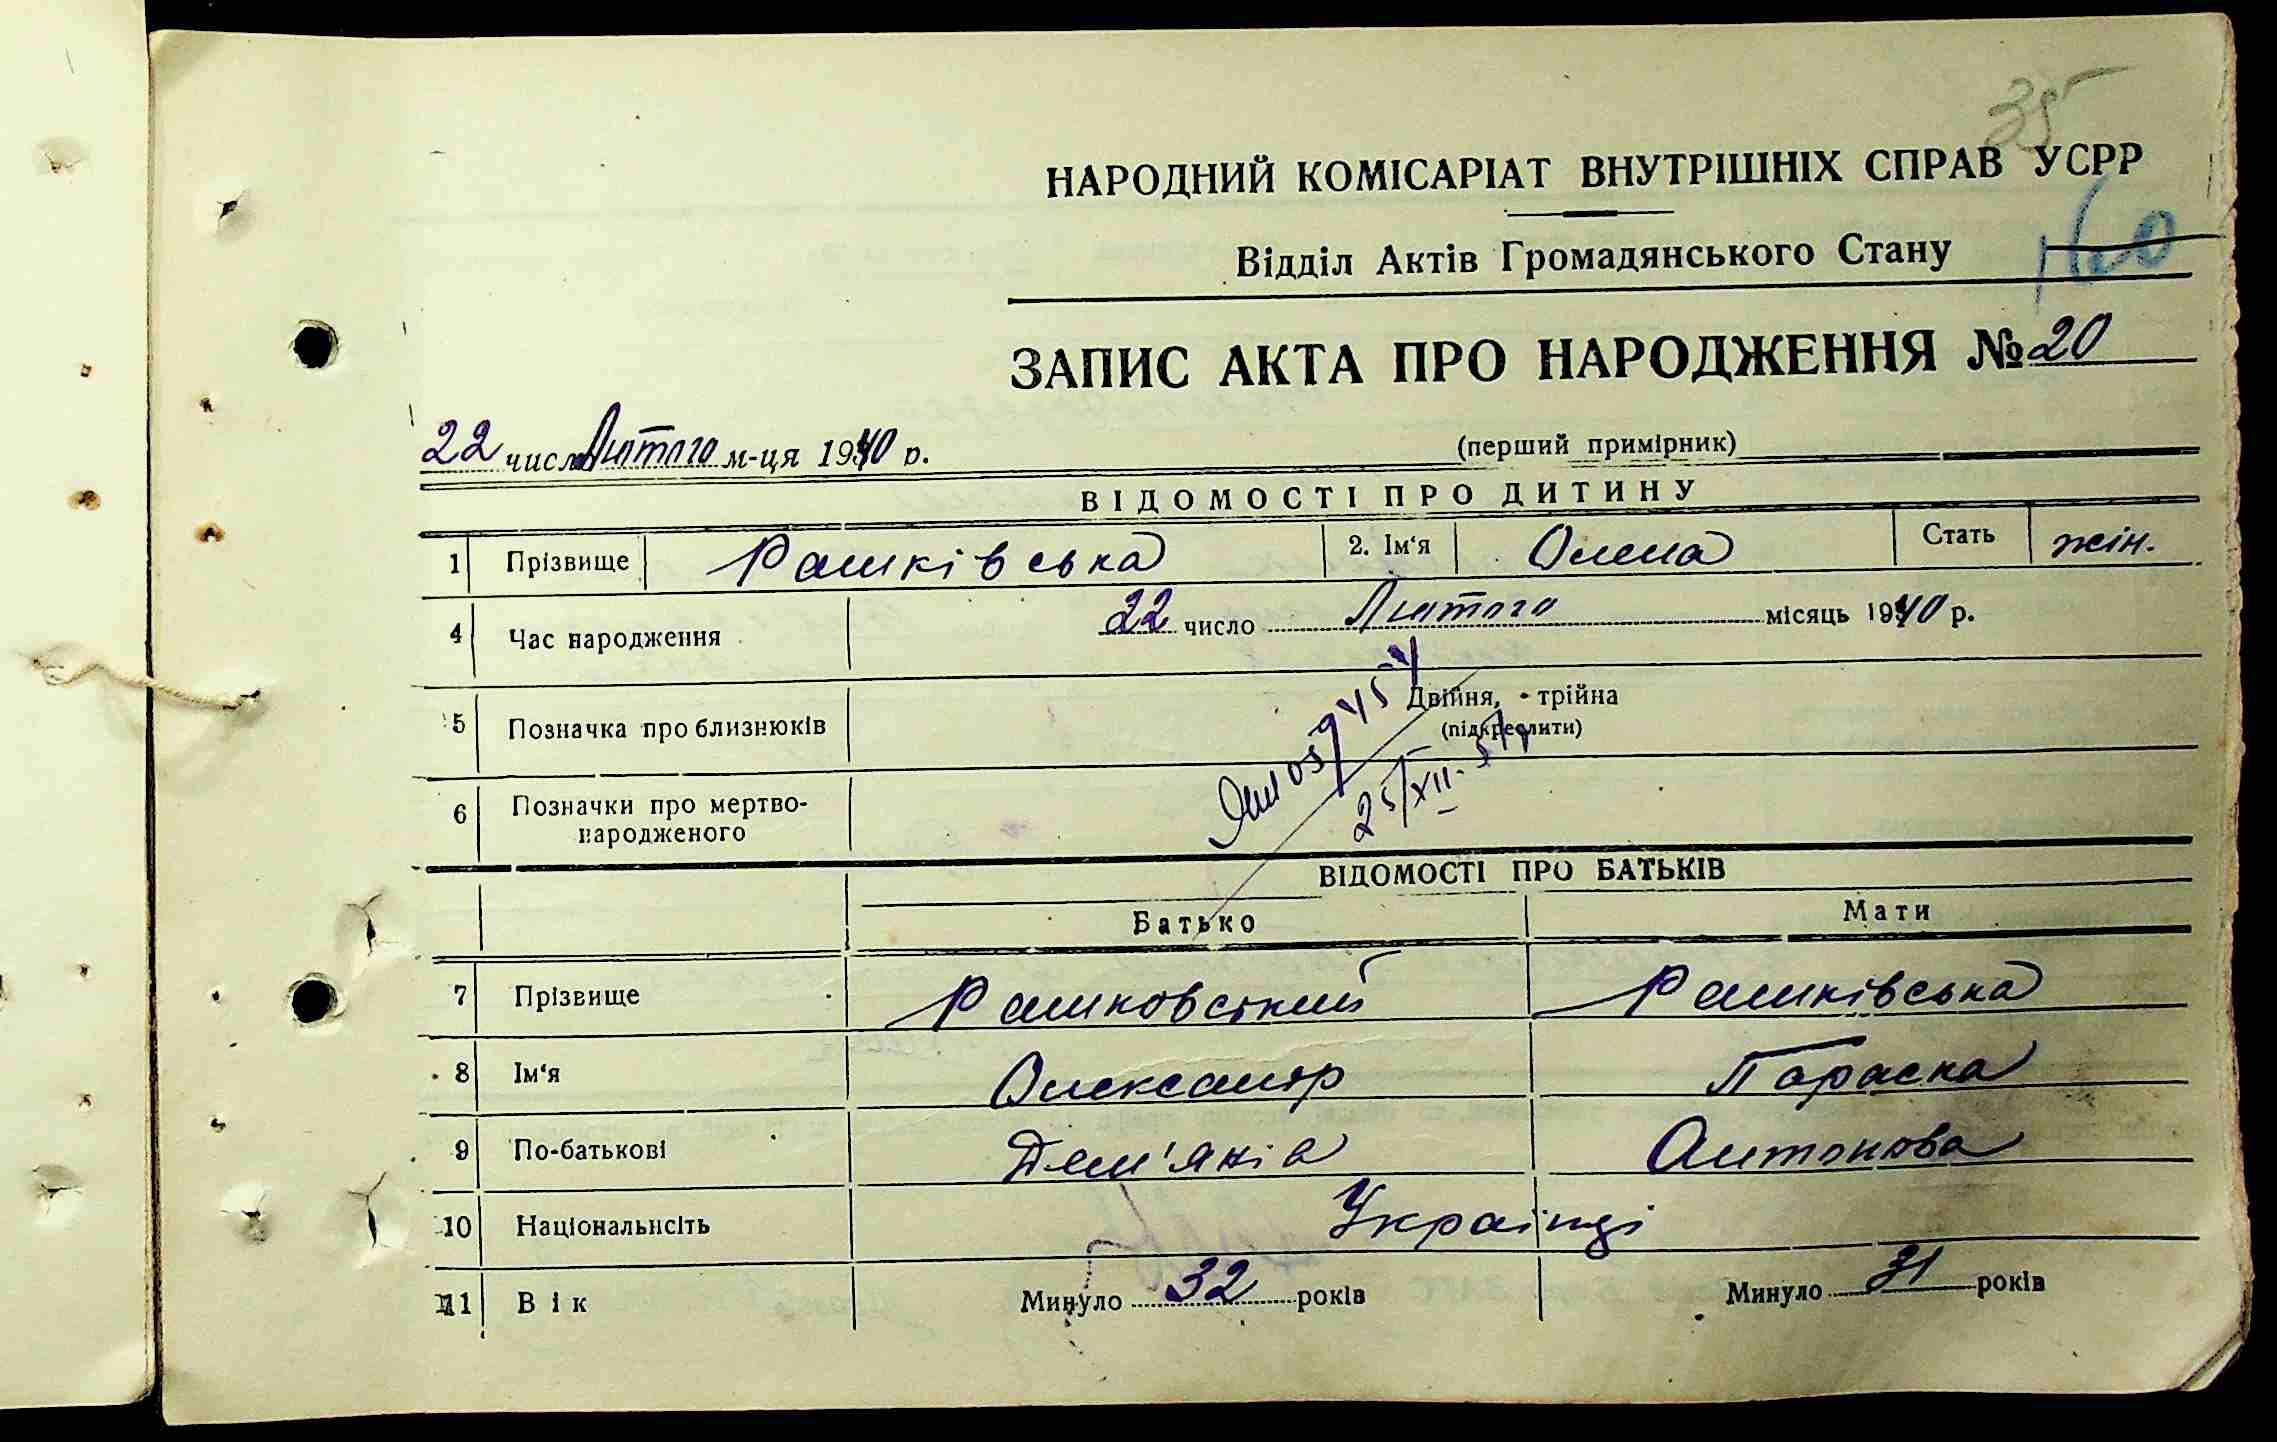 35
НАРОДНИЙ КОМІСАРІАТ ВНУТРІШНІХ СПРАВ УСРР
160
Відділ Актів Громадянського Стану
ЗАПИС АКТА ПРО НАРОДЖЕННЯ № 20
22 число Лютого м-ця 1940 р.
(перший примірник)
ВІДОМОСТІ ПРО ДИТИНУ
1 Прізвище Рашківська 2. Ім'я Олена Стать жін.
4 Час народження 22 число Лютого місяць 1940 р.
5 Позначка про близнюків Двійня, трійна
(підкреслити)
25/XII-
6 Позначки про мертво-
народженого
ВІДОМОСТІ ПРО БАТЬКІВ
Батько Мати
7 Прізвище Рашковський Рашківська
8 Ім'я Олександр Параска
9 По-батькові Дем'янів Антонова
10 Національність Українці
11 Вік Минуло 32 років Минуло 31 років